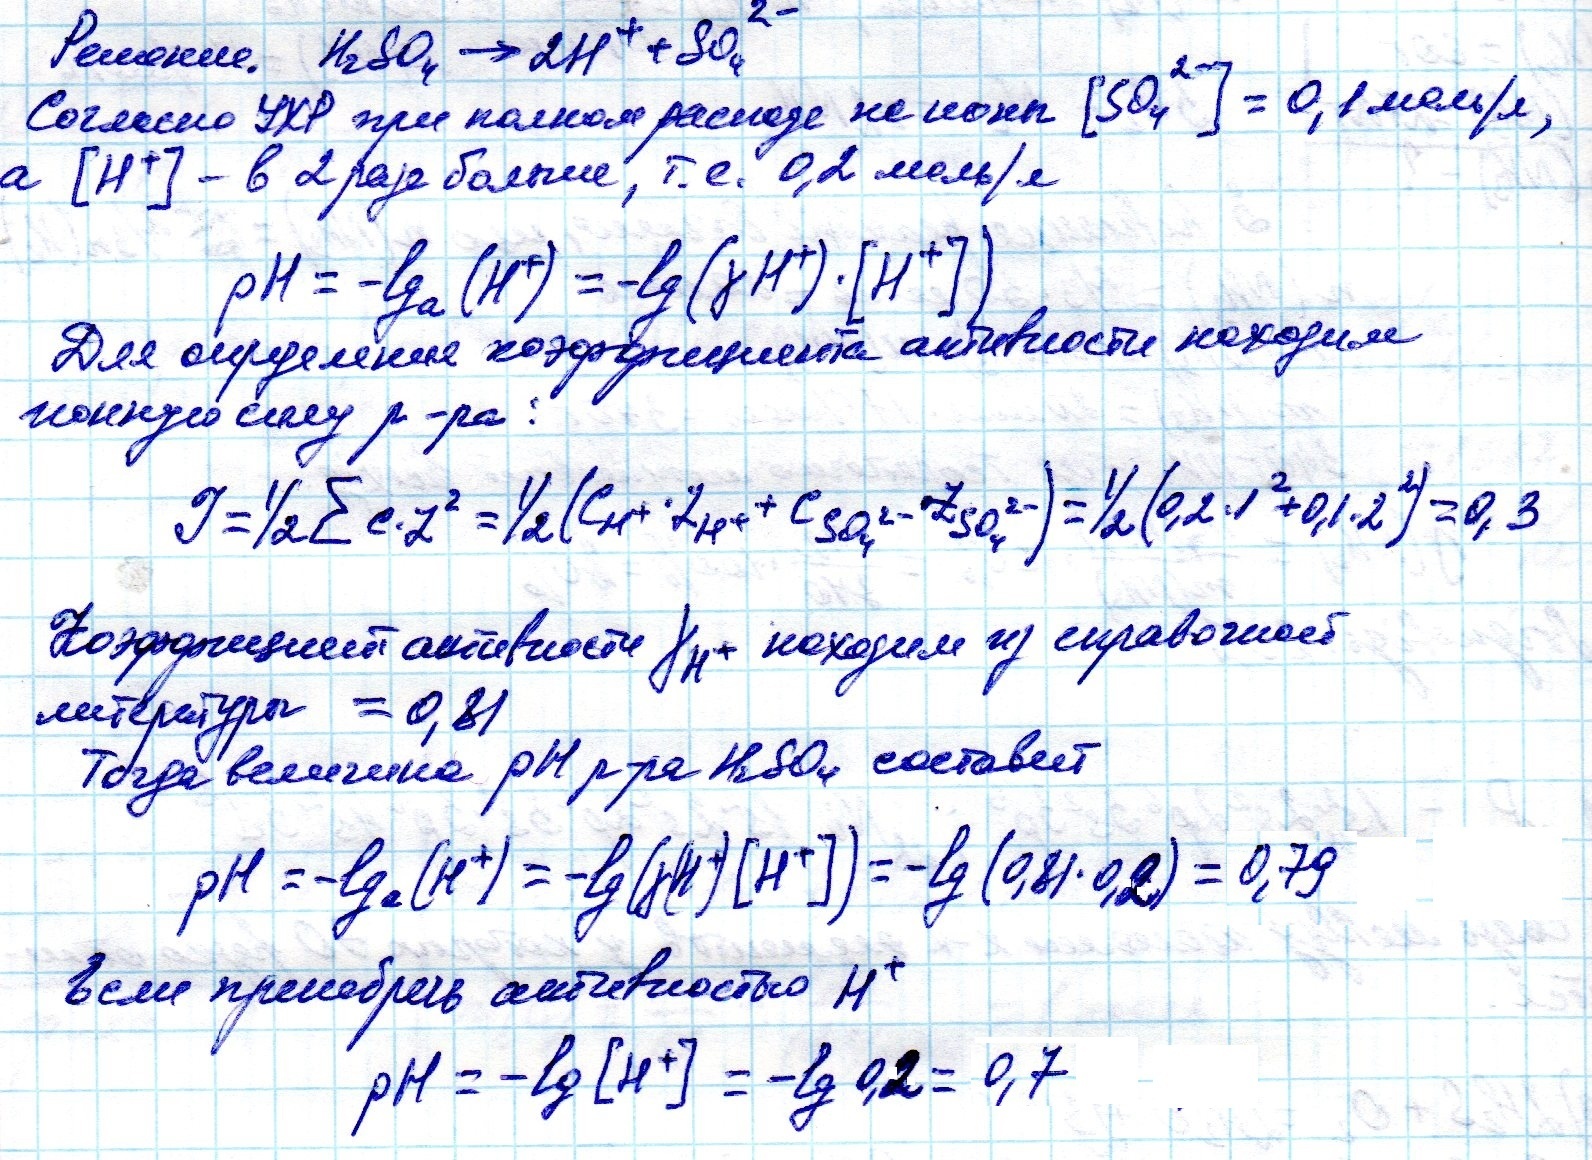 Решение. H₂SO₄ → 2H⁺ + SO₄²⁻
Согласно УХР при полном распаде на ионы [SO₄²⁻] = 0,1 моль/л,
а [H⁺] – в 2 раза больше, т.е. 0,2 моль/л
pH = -lg a (H⁺) = -lg(γH⁺)·[H⁺])
Для определения коэффициента активности находим
ионную силу р-ра:
I = 1/2 Σ c·z² = 1/2 (C_H⁺·Z_H⁺ + C_SO₄²⁻·Z_SO₄²⁻) = 1/2 (0,2·1² + 0,1·2²) = 0,3
Коэффициент активности γ_H⁺ находим из справочной
литературы = 0,81
Тогда величина pH р-ра H₂SO₄ составит
pH = -lg a (H⁺) = -lg(γ(H⁺)[H⁺]) = -lg (0,81·0,2) = 0,79
Если пренебречь активностью H⁺
pH = -lg [H⁺] = -lg 0,2 = 0,7